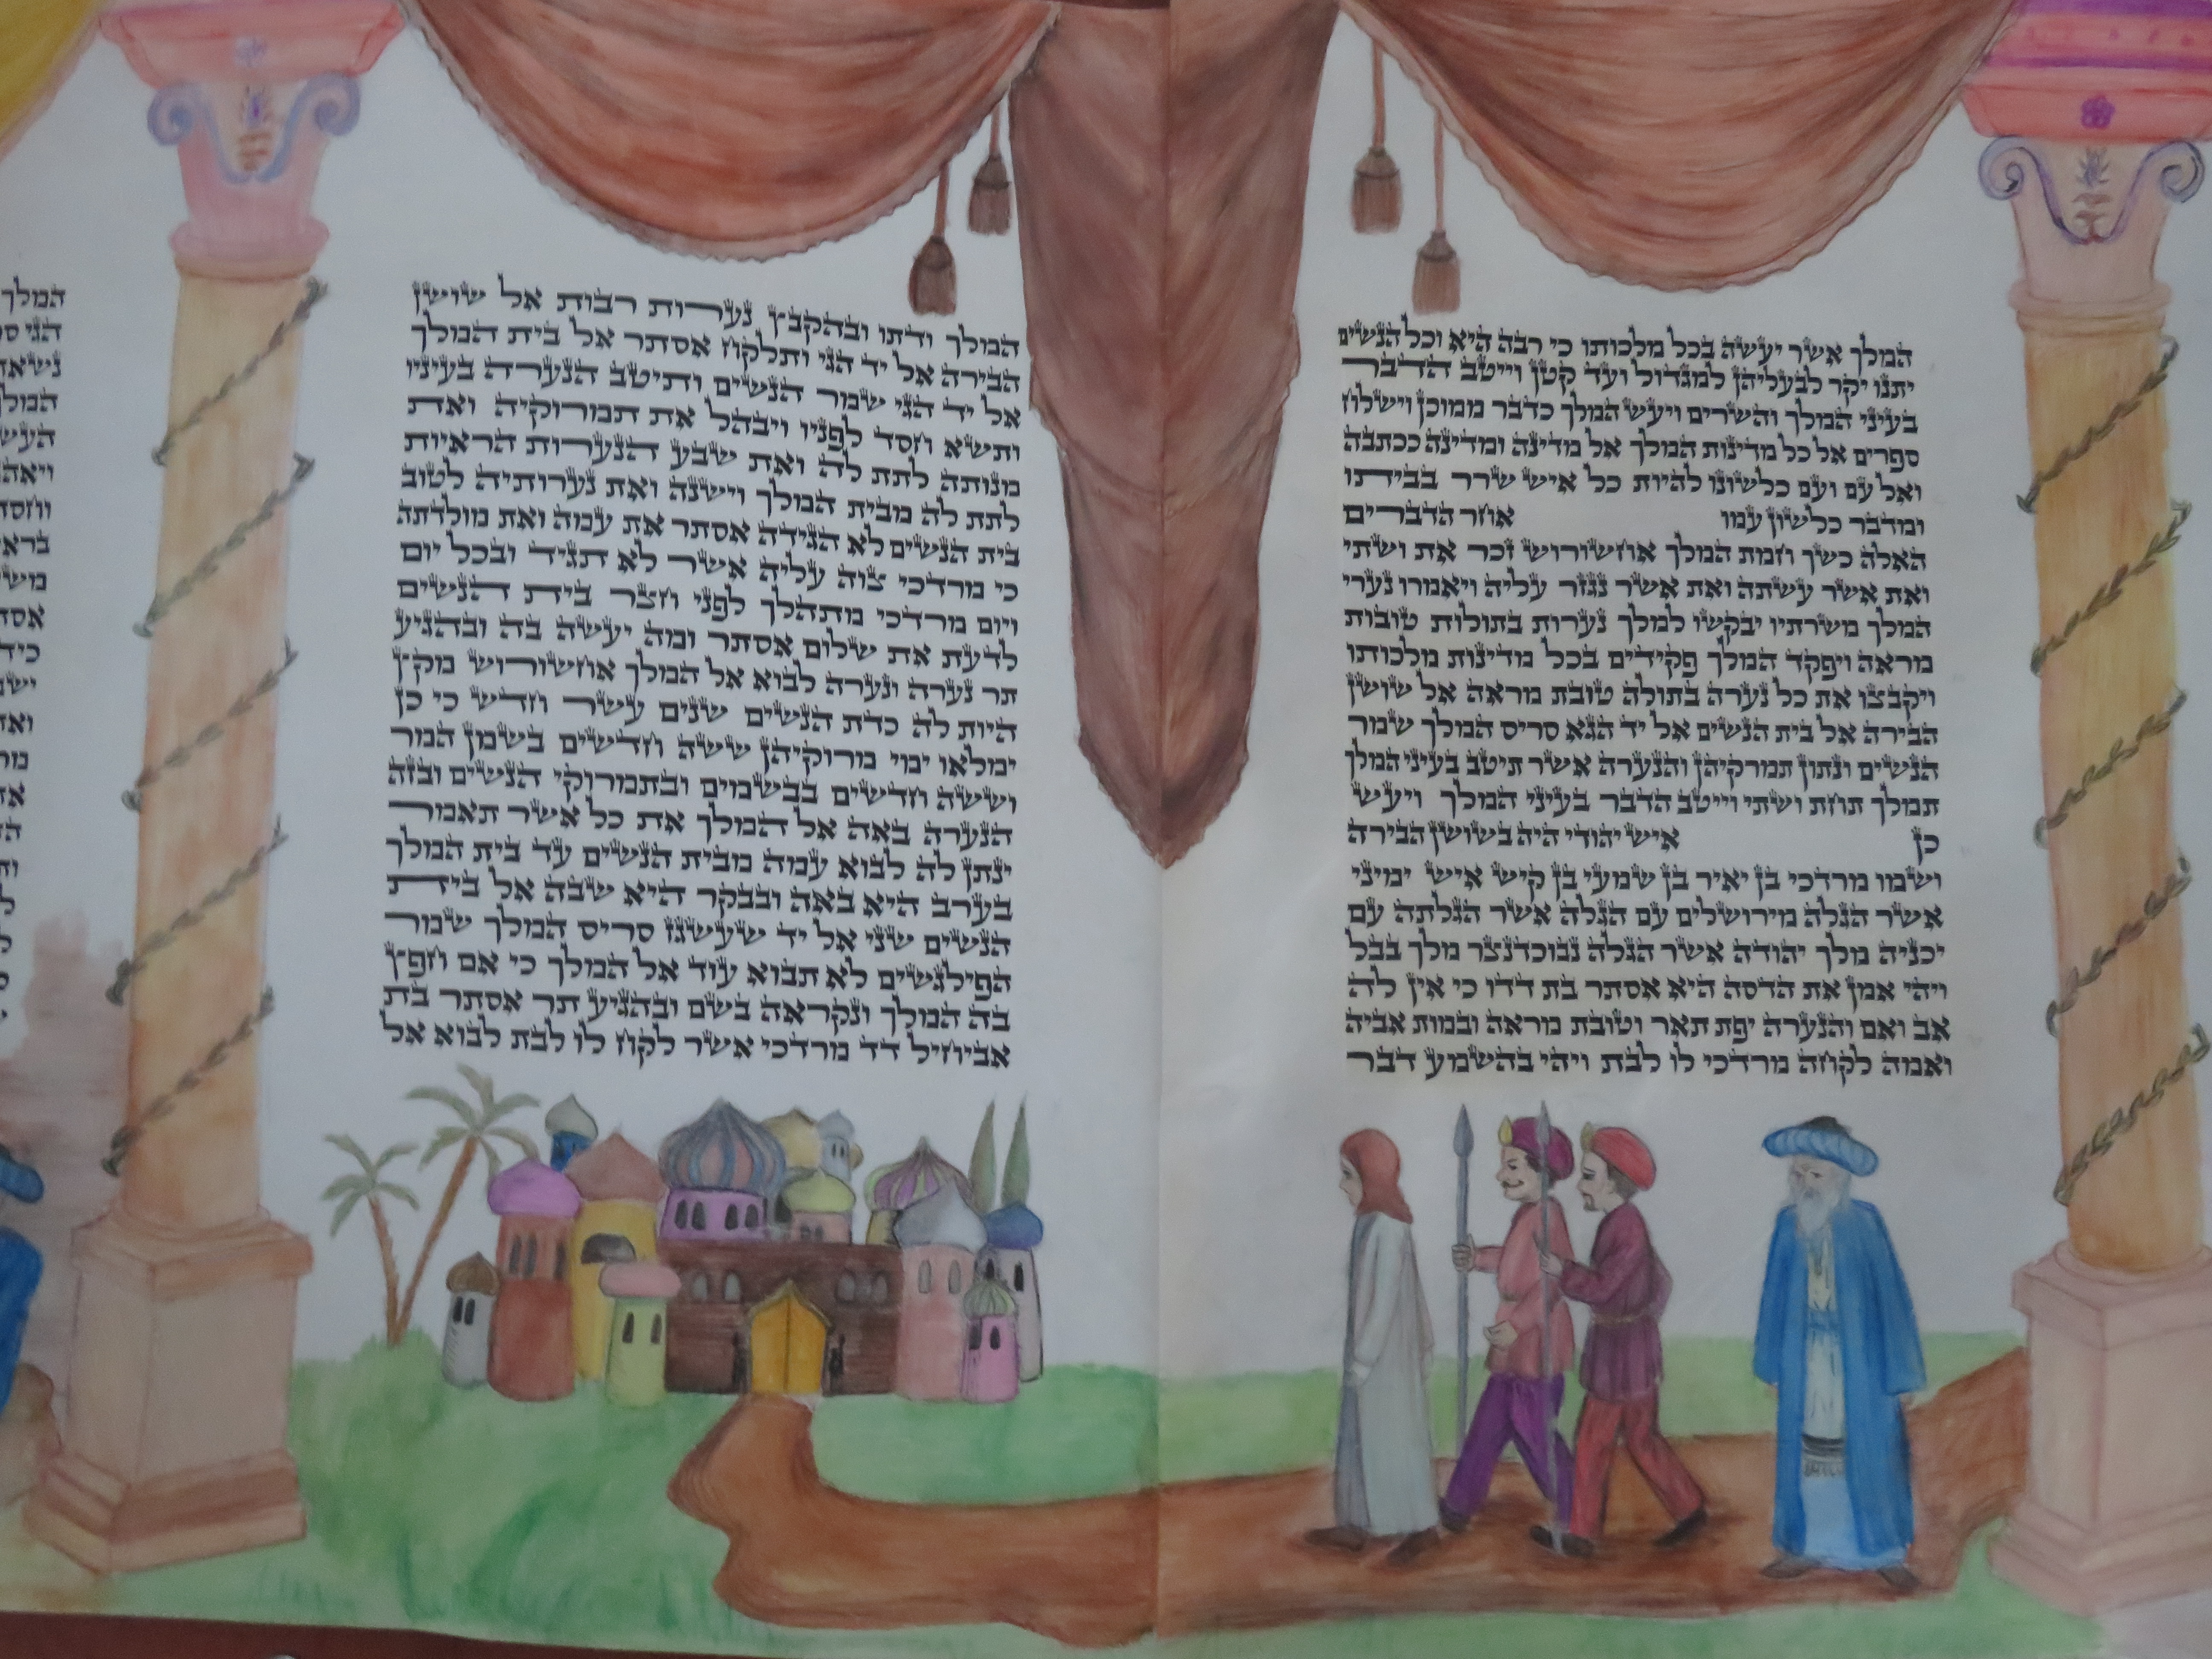 המלך אשר יעשה בכל מלכותו כי רבה היא וכל הנשים
יתנו יקר לבעליהן למגדול ועד קטן וייטב הדבר
בעיני המלך והשרים ויעש המלך כדבר ממוכן וישלח
ספרים אל כל מדינות המלך אל מדינה ומדינה ככתבה
ואל עם ועם כלשונו להיות כל איש שרר בביתו
ומדבר כלשון עמו אחר הדברים
האלה כשך חמת המלך אחשורוש זכר את ושתי
ואת אשר עשתה ואת אשר נגזר עליה ויאמרו נערי
המלך משרתיו יבקשו למלך נערות בתולות טובות
מראה ויפקד המלך פקידים בכל מדינות מלכותו
ויקבצו את כל נערה בתולה טובת מראה אל שושן
הבירה אל בית הנשים אל יד הגא סריס המלך שמר
הנשים ונתון תמרקיהן והנערה אשר תיטב בעיני המלך
תמלך תחת ושתי וייטב הדבר בעיני המלך ויעש
כן איש יהודי היה בשושן הבירה
ושמו מרדכי בן יאיר בן שמעי בן קיש איש ימיני
אשר הגלה מירושלים עם הגלה אשר הגלתה עם
יכניה מלך יהודה אשר הגלה נבוכדנצר מלך בבל
ויהי אמן את הדסה היא אסתר בת דדו כי אין לה
אב ואם והנערה יפת תאר וטובת מראה ובמות אביה
ואמה לקחה מרדכי לו לבת ויהי בהשמע דבר
המלך ודתו ובהקבץ נערות רבות אל שושן
הבירה אל יד הגי ותלקח אסתר אל בית המלך
אל יד הגי שמר הנשים ותיטב הנערה בעיניו
ותשא חסד לפניו ויבהל את תמרוקיה ואת
מנותה לתת לה ואת שבע הנערות הראיות
לתת לה מבית המלך וישנה ואת נערותיה לטוב
בית הנשים לא הגידה אסתר את עמה ואת מולדתה
כי מרדכי צוה עליה אשר לא תגיד ובכל יום
ויום מרדכי מתהלך לפני חצר בית הנשים
לדעת את שלום אסתר ומה יעשה בה ובהגיע
תר נערה ונערה לבוא אל המלך אחשורוש מקץ
היות לה כדת הנשים שנים עשר חדש כי כן
ימלאו ימי מרוקיהן ששה חדשים בשמן המר
וששה חדשים בבשמים ובתמרוקי הנשים ובזה
הנערה באה אל המלך את כל אשר תאמר
ינתן לה לבוא עמה מבית הנשים עד בית המלך
בערב היא באה ובבקר היא שבה אל בית
הנשים שני אל יד שעשגז סריס המלך שמר
הפילגשים לא תבוא עוד אל המלך כי אם חפץ
בה המלך ונקראה בשם ובהגיע תר אסתר בת
אביחיל דד מרדכי אשר לקח לו לבת לבוא אל
המלך
הגי
המלך